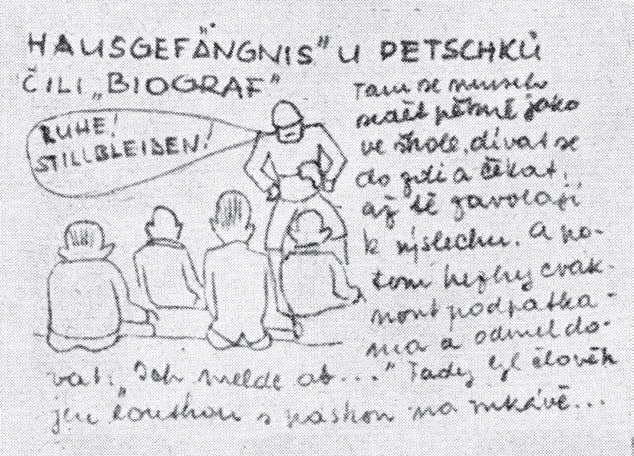 HAUSGEFÄNGNIS" U PETSCHKŮ
ČILI „BIOGRAF"
RUHE!
STILLBLEIBEN!
Tam se muselo
sedět pěkně jako
ve škole, dívat se
do zdi a čekat,
až tě zavolají
k výslechu. A po-
tom hezky cvak-
nout podpatka-
ma a odmeldo-
vat: „Ich melde ab..." Tady byl člověk
jen loutkou s páskou na rukávě...